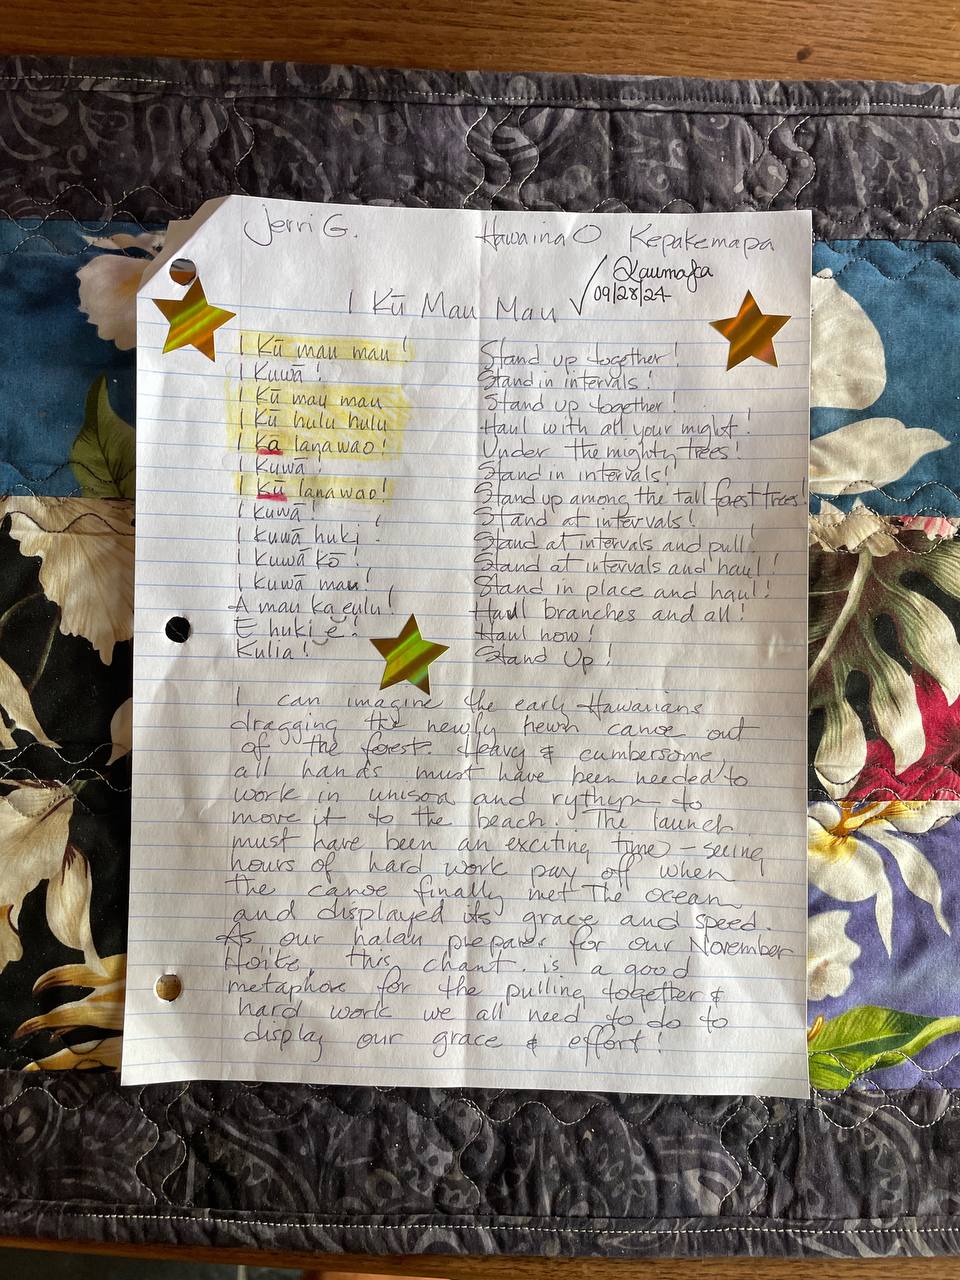 Jerri G. Hawaina O Kepakemapa
✓ Kaumaka
09/28/24
I Kū Mau Mau
I Kū mau mau! Stand up together!
I Kuwā! Stand in intervals!
I Kū mau mau Stand up together!
I Kū hulu hulu Haul with all your might!
I Ka lanawao! Under the mighty trees!
I Kuwā! Stand in intervals!
I Kū lanawao! Stand up among the tall forest trees!
I Kuwā! Stand at intervals!
I Kuwā huki! Stand at intervals and pull!
I Kuwā kō! Stand at intervals and haul!
I Kuwā mau! Stand in place and haul!
A mau ka eulu! Haul branches and all!
E huki ē! Haul now!
Kulia! Stand Up!
I can imagine the early Hawaiians
dragging the newly hewn canoe out
of the forest. Heavy & cumbersome,
all hands must have been needed to
work in unison and rythym to
move it to the beach. The launch
must have been an exciting time - seeing
hours of hard work pay off when
the canoe finally met The ocean
and displayed its grace and speed.
As our halau prepares for our November
Hoike, this chant is a good
metaphore for the pulling together &
hard work we all need to do to
display our grace & effort!